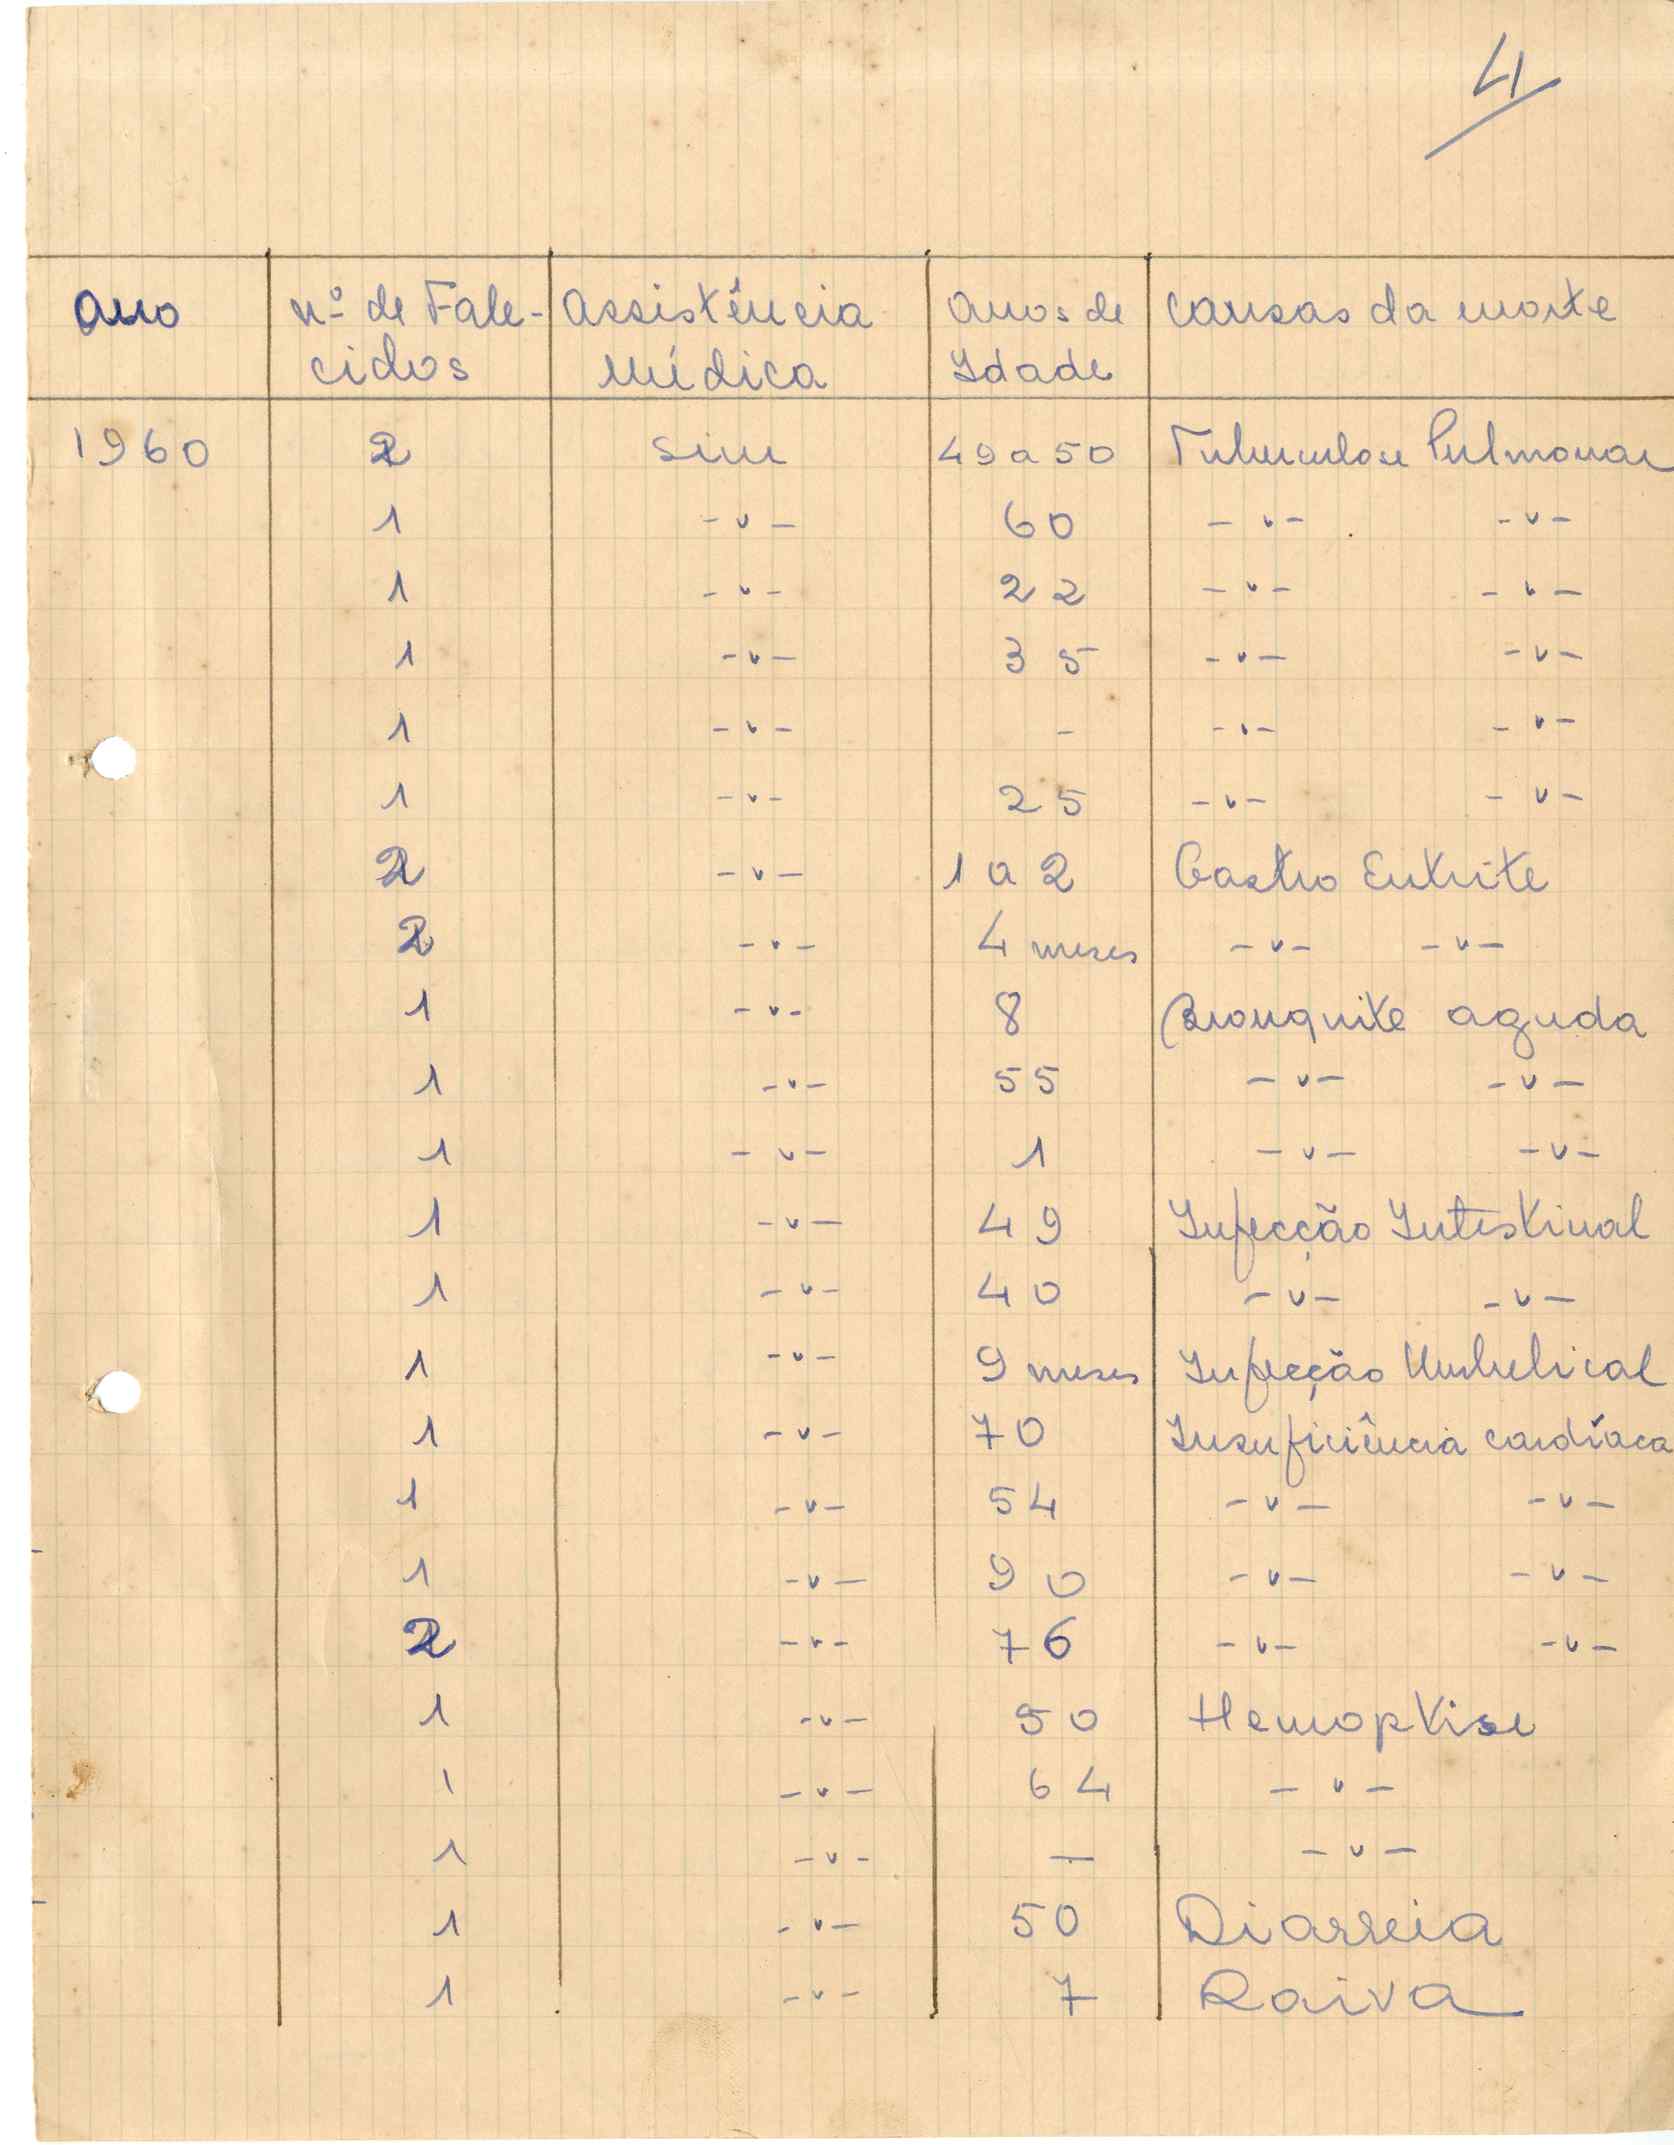 4
Ano nº de Fale- Assistência Anos de Causas da morte
cidos Médica Idade
1960 2 Sim 49 a 50 Tuberculose Pulmonar
1 -v- 60 -v- -v-
1 -v- 22 -v- -v-
1 -v- 35 -v- -v-
1 -v- - -v- -v-
1 -v- 25 -v- -v-
2 -v- 1 a 2 Gastro Entrite
2 -v- 4 meses -v- -v-
1 -v- 8 Bronquite aguda
1 -v- 55 -v- -v-
1 -v- 1 -v- -v-
1 -v- 49 Infecção Intestinal
1 -v- 40 -v- -v-
1 -v- 9 meses Infecção Umbelical
1 -v- 70 Insuficiência cardíaca
1 -v- 54 -v- -v-
1 -v- 90 -v- -v-
2 -v- 76 -v- -v-
1 -v- 50 Hemoptise
1 -v- 64 -v-
1 -v- — -v-
1 -v- 50 Diarreia
1 -v- 7 Raiva